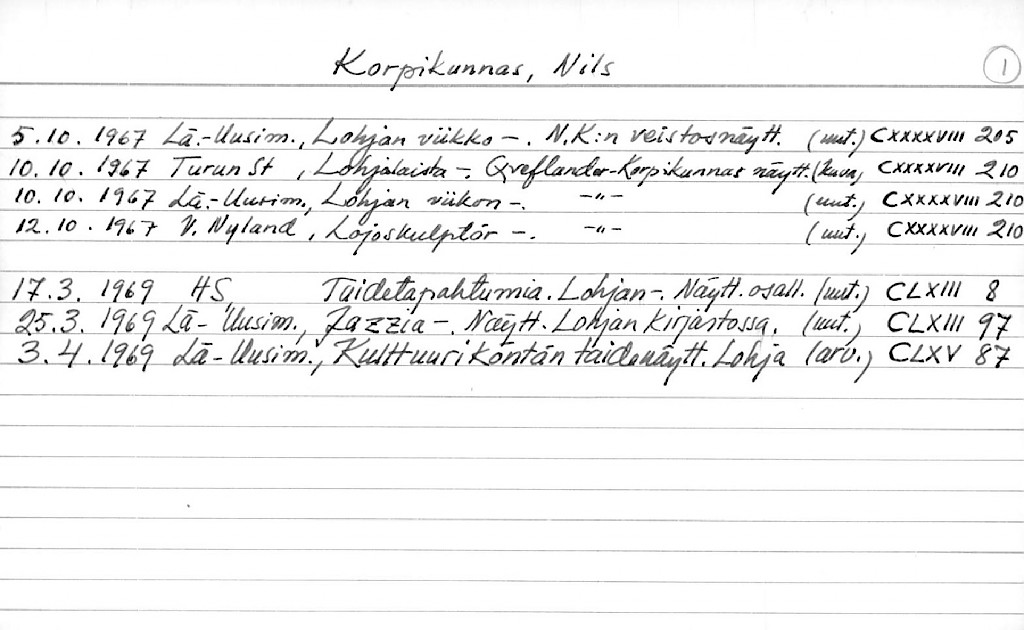 Korpikunnas, Nils 1
5.10.1967 Lä.-Uusim., Lohjan viikko -. N.K:n veistosnäytt. (uut.) CXXXXVIII 205
10.10.1967 Turun St, Lohjalaista -. Qveflander-Korpikunnas näytt. (kuva) CXXXXVIII 210
10.10.1967 Lä.-Uusim., Lohjan viikon -. -"- (uut.) CXXXXVIII 210
12.10.1967 V. Nyland, Lojoskulptör -. -"- (uut.) CXXXXVIII 210
17.3.1969 HS, Taidetapahtumia. Lohjan -. Näytt. osall. (uut.) CLXIII 8
25.3.1969 Lä-Uusim., Jazzia -. Näytt. Lohjan kirjastossa. (uut.) CLXIII 97
3.4.1969 Lä-Uusim., Kulttuurikontan taidenäytt. Lohja (arv.) CLXV 87